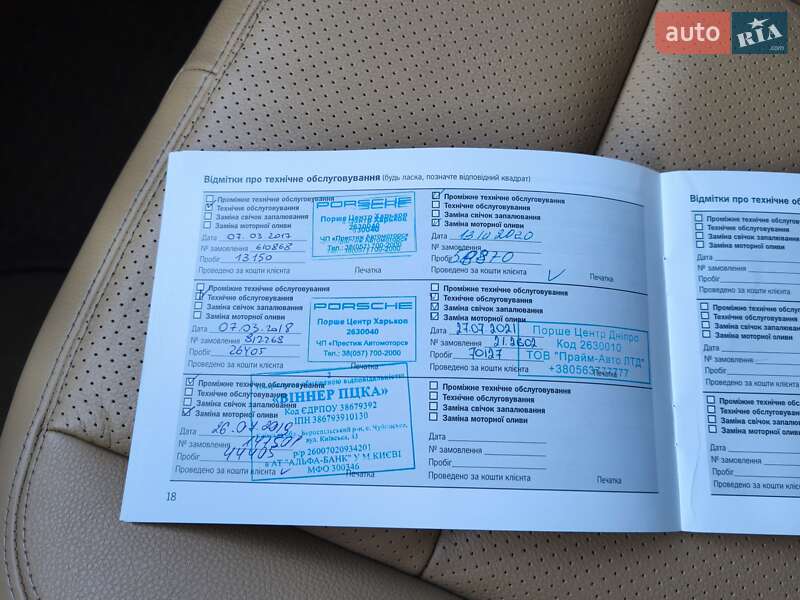 auto RIA
Відмітки про технічне обслуговування (будь ласка, позначте відповідний квадрат)
Проміжне технічне обслуговування
Технічне обслуговування
Заміна свічок запалювання
Заміна моторної оливи
Дата 07.03.2017
№ замовлення 610868
Пробіг 13150
Проведено за кошти клієнта
Печатка
PORSCHE
Порше Центр Харьков
2630040
ЧП «Престиж Автомоторс»
Тел.: 38(057)700-2000
Проміжне технічне обслуговування
Технічне обслуговування
Заміна свічок запалювання
Заміна моторної оливи
Дата 07.03.2018
№ замовлення 812268
Пробіг 26405
Проведено за кошти клієнта
Печатка
PORSCHE
Порше Центр Харьков
2630040
ЧП «Престиж Автомоторс»
Тел.: 38(057)700-2000
Проміжне технічне обслуговування
Технічне обслуговування
Заміна свічок запалювання
Заміна моторної оливи
Дата 26.04.2019
№ замовлення
Пробіг 44405
Проведено за кошти клієнта
відповідальністю
«ВІННЕР ПЦКА»
Код ЄДРПОУ 38679392
ІПН 386793910130
Бориспільський р-н, с. Чубинське,
вул. Київська, 43
р/р 26007020934201
в АТ "АЛЬФА-БАНК" У М.КИЄВІ
МФО 300346
18
Проміжне технічне обслуговування
Технічне обслуговування
Заміна свічок запалювання
Заміна моторної оливи
Дата 10 2020
№ замовлення
Пробіг 58870
Проведено за кошти клієнта
Печатка
Проміжне технічне обслуговування
Технічне обслуговування
Заміна свічок запалювання
Заміна моторної оливи
Дата 27.07.2021
№ замовлення 21.2602
Пробіг 70127
Проведено за кошти клієнта
Печатка
Порше Центр Дніпро
Код 2630010
ТОВ "Прайм-Авто ЛТД"
+380563777777
Проміжне технічне обслуговування
Технічне обслуговування
Заміна свічок запалювання
Заміна моторної оливи
Дата
№ замовлення
Пробіг
Проведено за кошти клієнта
Печатка
Відмітки про технічне об
Проміжне технічне обслугов
Технічне обслуговування
Заміна свічок запалювання
Заміна моторної оливи
Дата
№ замовлення
Пробіг
Проведено за кошти клієнта
Проміжне технічне обслуго
Технічне обслуговування
Заміна свічок запалювання
Заміна моторної оливи
Дата
№ замовлення
Пробіг
Проведено за кошти клієнт
Проміжне технічне обслуг
Технічне обслуговування
Заміна свічок запалюванн
Заміна моторної оливи
Дата
№ замовлення
Пробіг
Проведено за кошти клієн